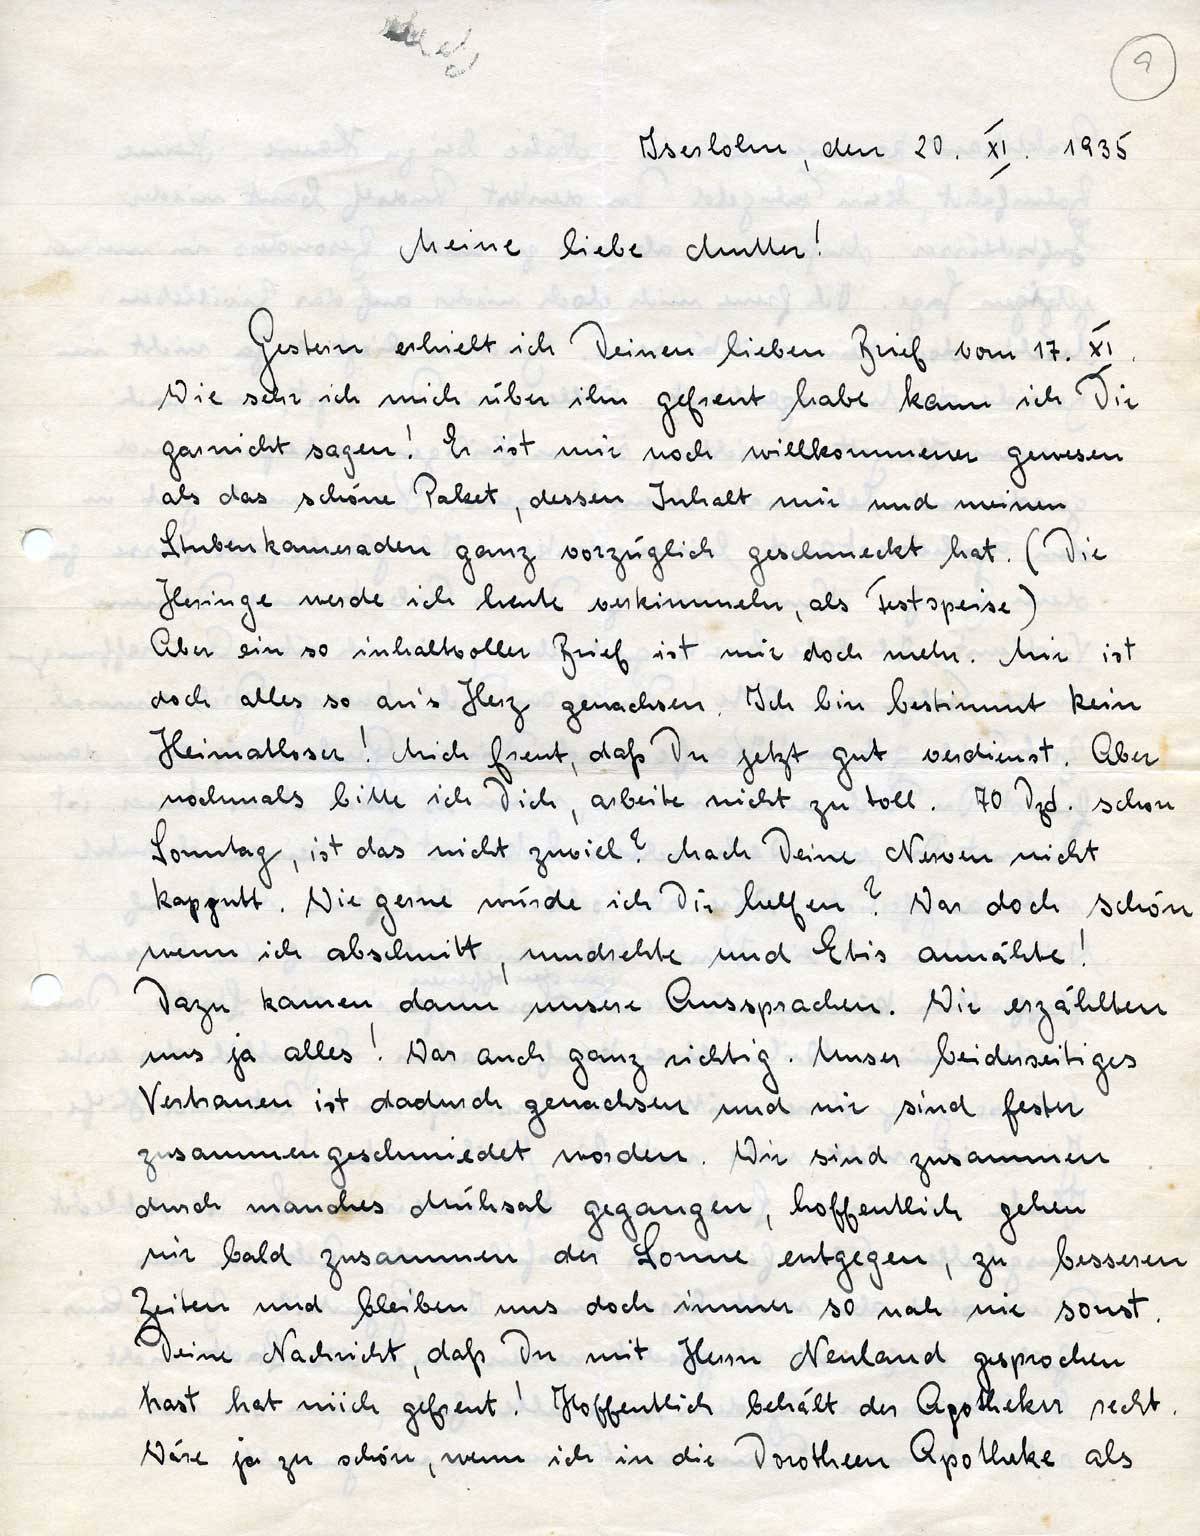 9
Iserlohn, den 20. XI. 1935
Meine liebe Mutter!
Gestern erhielt ich Deinen lieben Brief vom 17. XI.
Wie sehr ich mich über ihn gefreut habe kann ich Dir
garnicht sagen! Er ist mir noch willkommener gewesen
als das schöne Paket, dessen Inhalt mir und meinen
Stubenkameraden ganz vorzüglich geschmeckt hat. (Die
Heringe werde ich heute verkimmeln, als Festspeise)
Aber ein so inhaltvoller Brief ist mir doch mehr. Mir ist
doch alles so an's Herz gewachsen. Ich bin bestimmt kein
Heimatloser! Mich freut, daß Du jetzt gut verdienst. Aber
nochmals bitte ich Dich, arbeite nicht zu toll. 70 Dzd. schon
Sonntag, ist das nicht zuviel? Mach Deine Nerven nicht
kapputt. Wie gerne würde ich Dir helfen? War doch schön
wenn ich abschnitt, umdrehte und Etis annähte!
Dazu kamen dann unsere Aussprachen. Wir erzählten
uns ja alles! War auch ganz richtig. Unser beiderseitiges
Vertrauen ist dadurch gewachsen und wir sind fester
zusammengeschmiedet worden. Wir sind zusammen
durch manches Mühsal gegangen, hoffentlich gehen
wir bald zusammen der Sonne entgegen, zu besseren
Zeiten und bleiben uns doch immer so nah wie sonst.
Deine Nachricht, daß Du mit Herrn Neuland gesprochen
hast hat mich gefreut! Hoffentlich behält der Apotheker recht.
Wäre ja zu schön, wenn ich in die Dorotheen Apotheke als